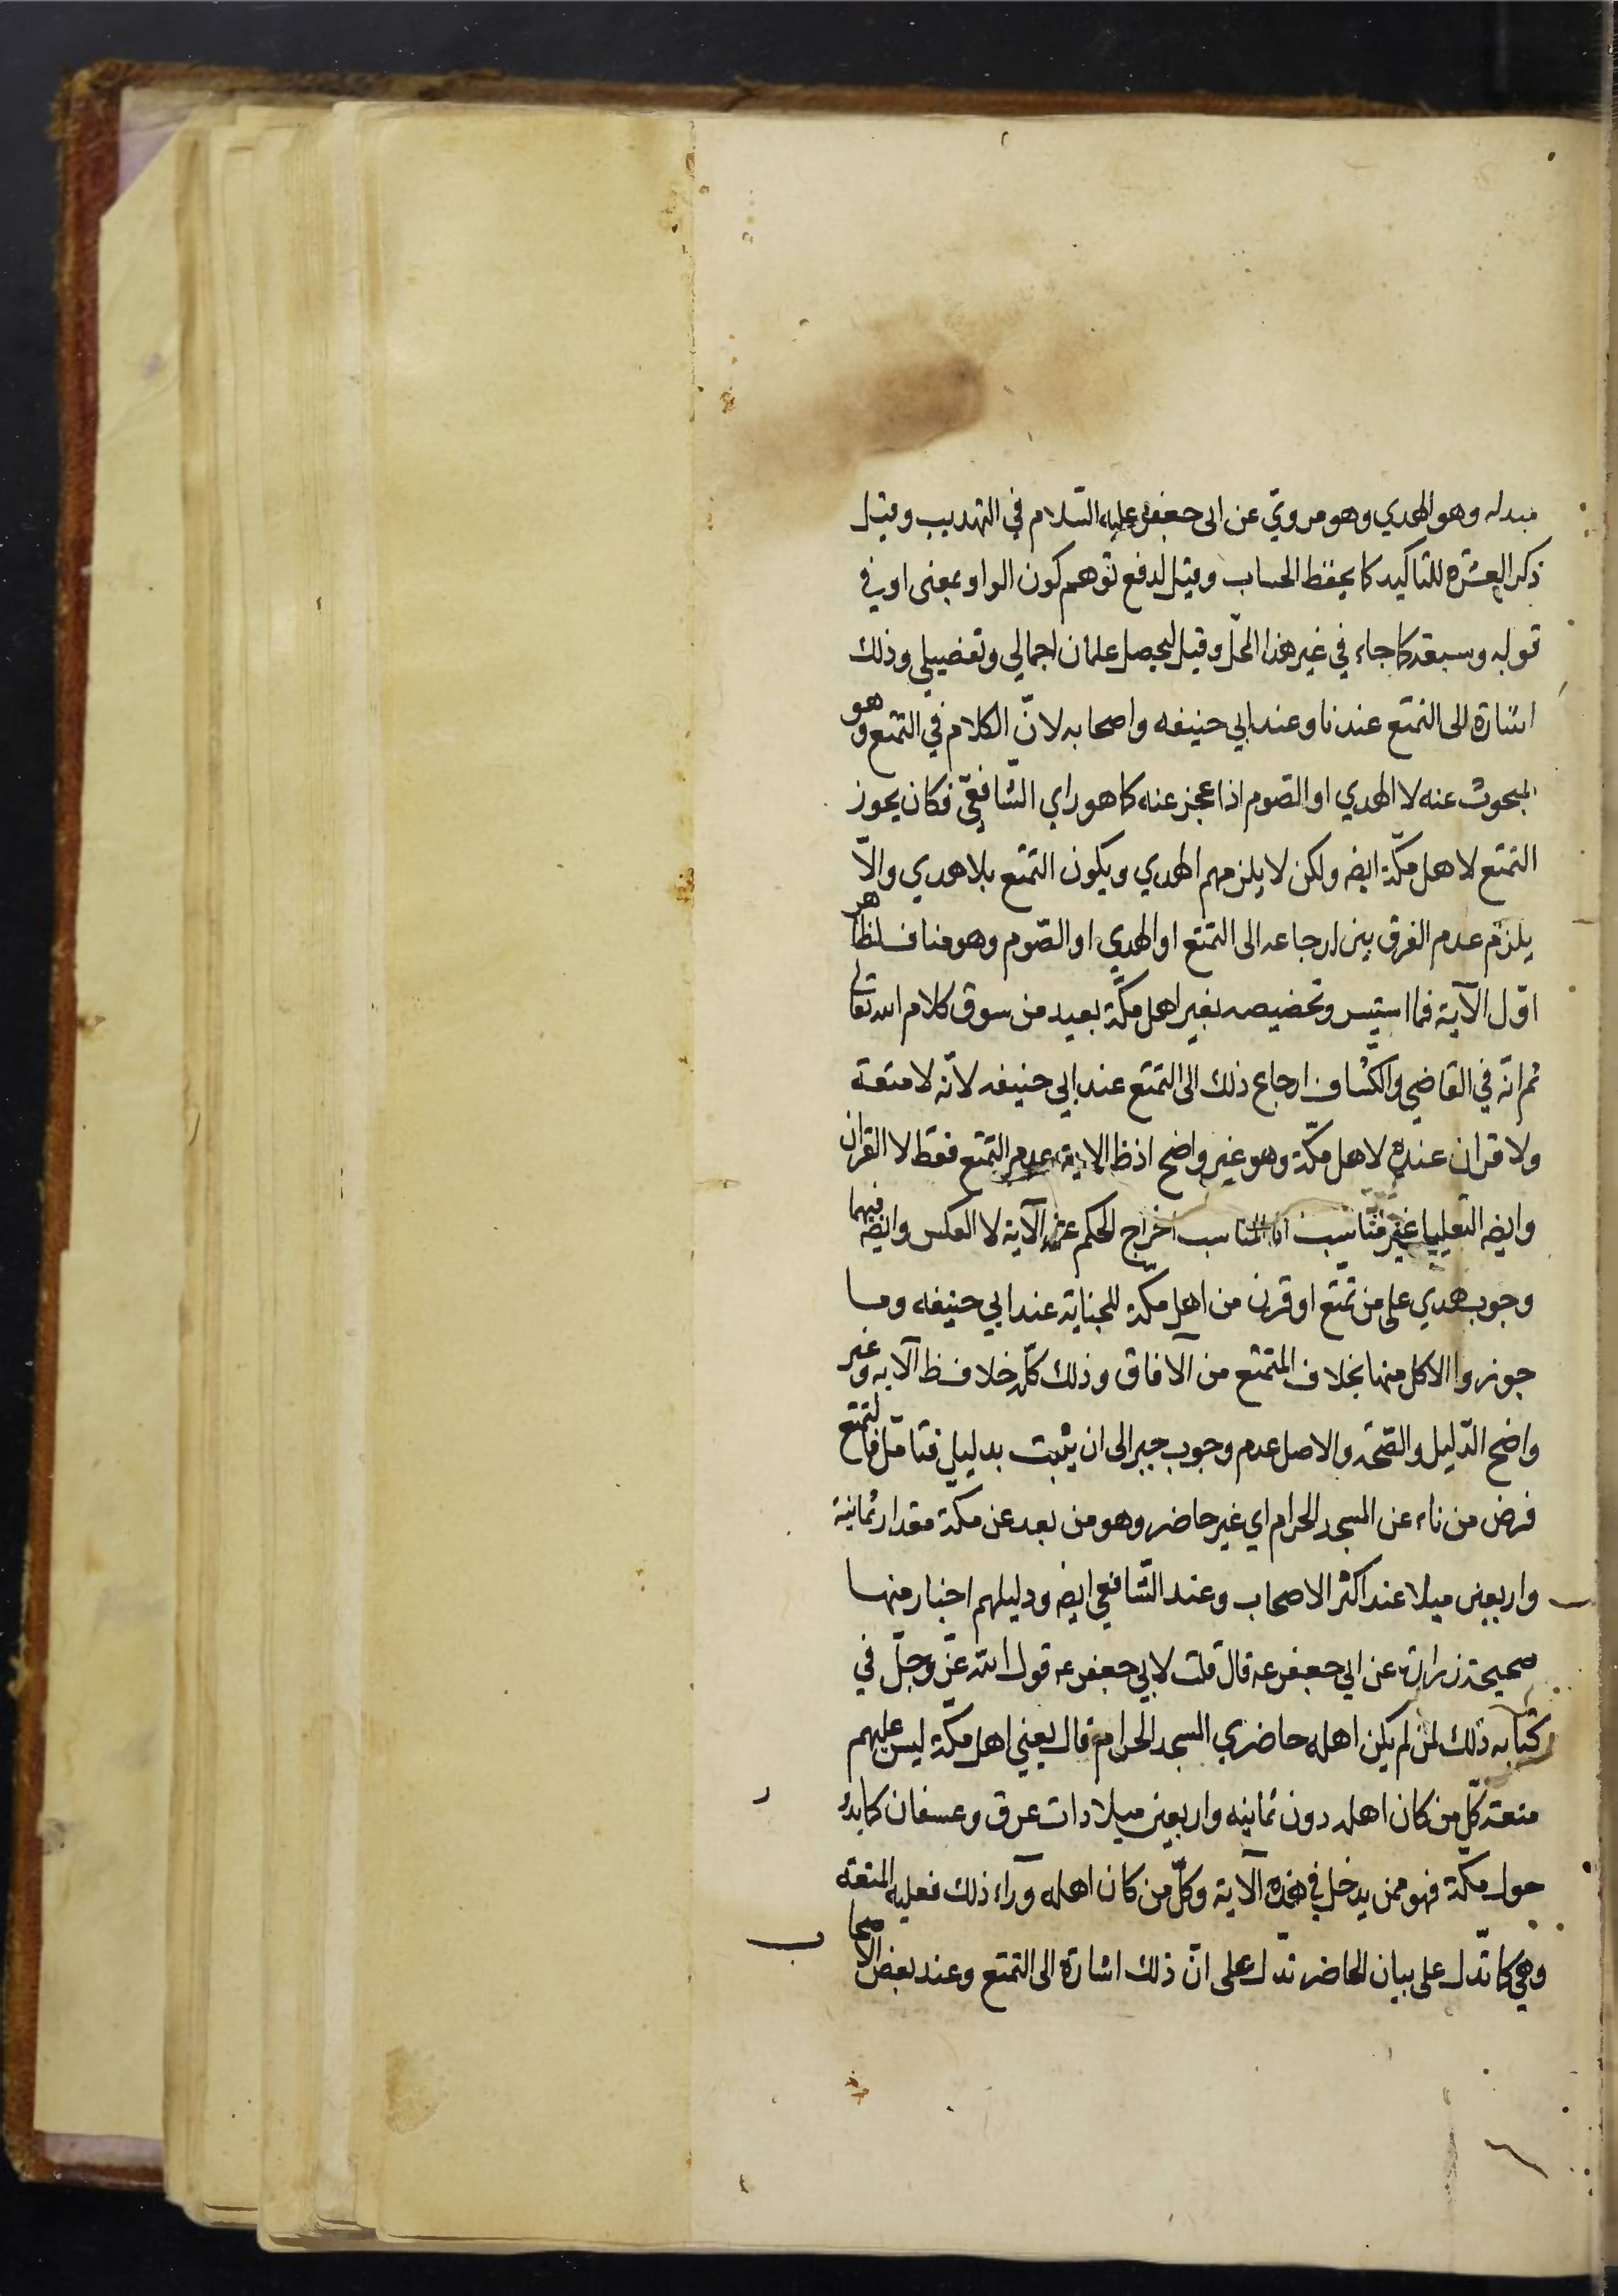 مبدله وهو الهدي وهو مروي عن ابى جعفر عليه السّلام في التهذيب وقيل
ذكر العشرة للتاكيد كما يحفظ الحساب وقيل لدفع توهم كون الواو بمعنى او في
قوله وسبعة كما جاء في غير هذا المحلّ وقيل ليحصل علمان اجمالي وتفصيلي وذلك
اشارة الى التمتع عندنا وعند ابي حنيفه واصحابه لانّ الكلام في التمتع وهو
المبحوث عنه لا الهدي او الصّوم اذا عجز عنه كما هو راي الشّافعيّ فكان يجوز
التمتع لاهل مكّة ايضه ولكن لا يلزمهم الهدي ويكون التمتع بلا هدي والّا
يلزم عدم الفرق بين ارجاعه الى التمتع او الهدي او الصّوم وهو مناف لظاهر
اوّل الآية فما استيسر وتخصيصه بغير اهل مكّة بعيد من سوق كلام الله تعالى
ثم انّه في القاضي والكشاف ارجاع ذلك الى التمتع عند ابي حنيفه لانّه لا متعة
ولا قران عنده لاهل مكّة وهو غير واضح اذ ظ الاية عدم التمتع فقط لا القران
وايضه التعليل غير مناسب اذ المناسب اخراج الحكم عن الآية لا العكس وايضه فيهما
وجوب هدي على من تمتع او قرن من اهل مكّة للجناية عند ابي حنيفه وما
جوزوا الاكل منها بخلاف المتمتع من الافاق وذلك كلّه خلاف ظ الآيه وغير
واضح الدّليل والصّحة والاصل عدم وجوب جبر الى ان يثبت بدليل فتامّل فالتمتع
فرض من ناء عن المسجد الحرام اي غير حاضر وهو من بعد عن مكّة مقدار ثمانية
واربعين ميلا عند اكثر الاصحاب وعند الشّافعي ايضه ودليلهم اخبار منها
صحيحة زرارة عن ابي جعفر عه قال قلت لابي جعفر عه قول الله عزّ وجلّ في
كتابه ذلك لمن لم يكن اهله حاضري المسجد الحرام قال يعني اهل مكّة ليس عليهم
متعة كلّ من كان اهله دون ثمانيه واربعين ميلا ذات عرق وعسفان كما يدور
حول مكّة فهو ممن يدخل في هذه الآية وكلّ من كان اهله وراء ذلك فعليه المتعة
وهي كما تدّل على بيان الحاضر تدّل على انّ ذلك اشارة الى التمتع وعند بعض الاصحاب